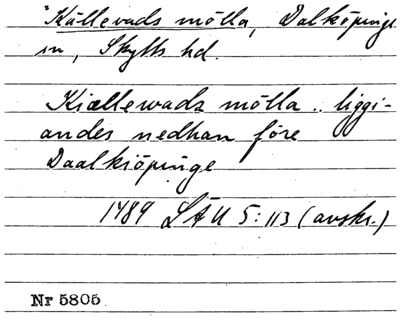 *Källevads mölla, Dalköpinge
sn, Skytts hd.
Kiællewadz mölla .. liggi-
andes nedhan före
Daalkiöpinge
1489 LÄU 5:113 (avskr.)
Nr 5805